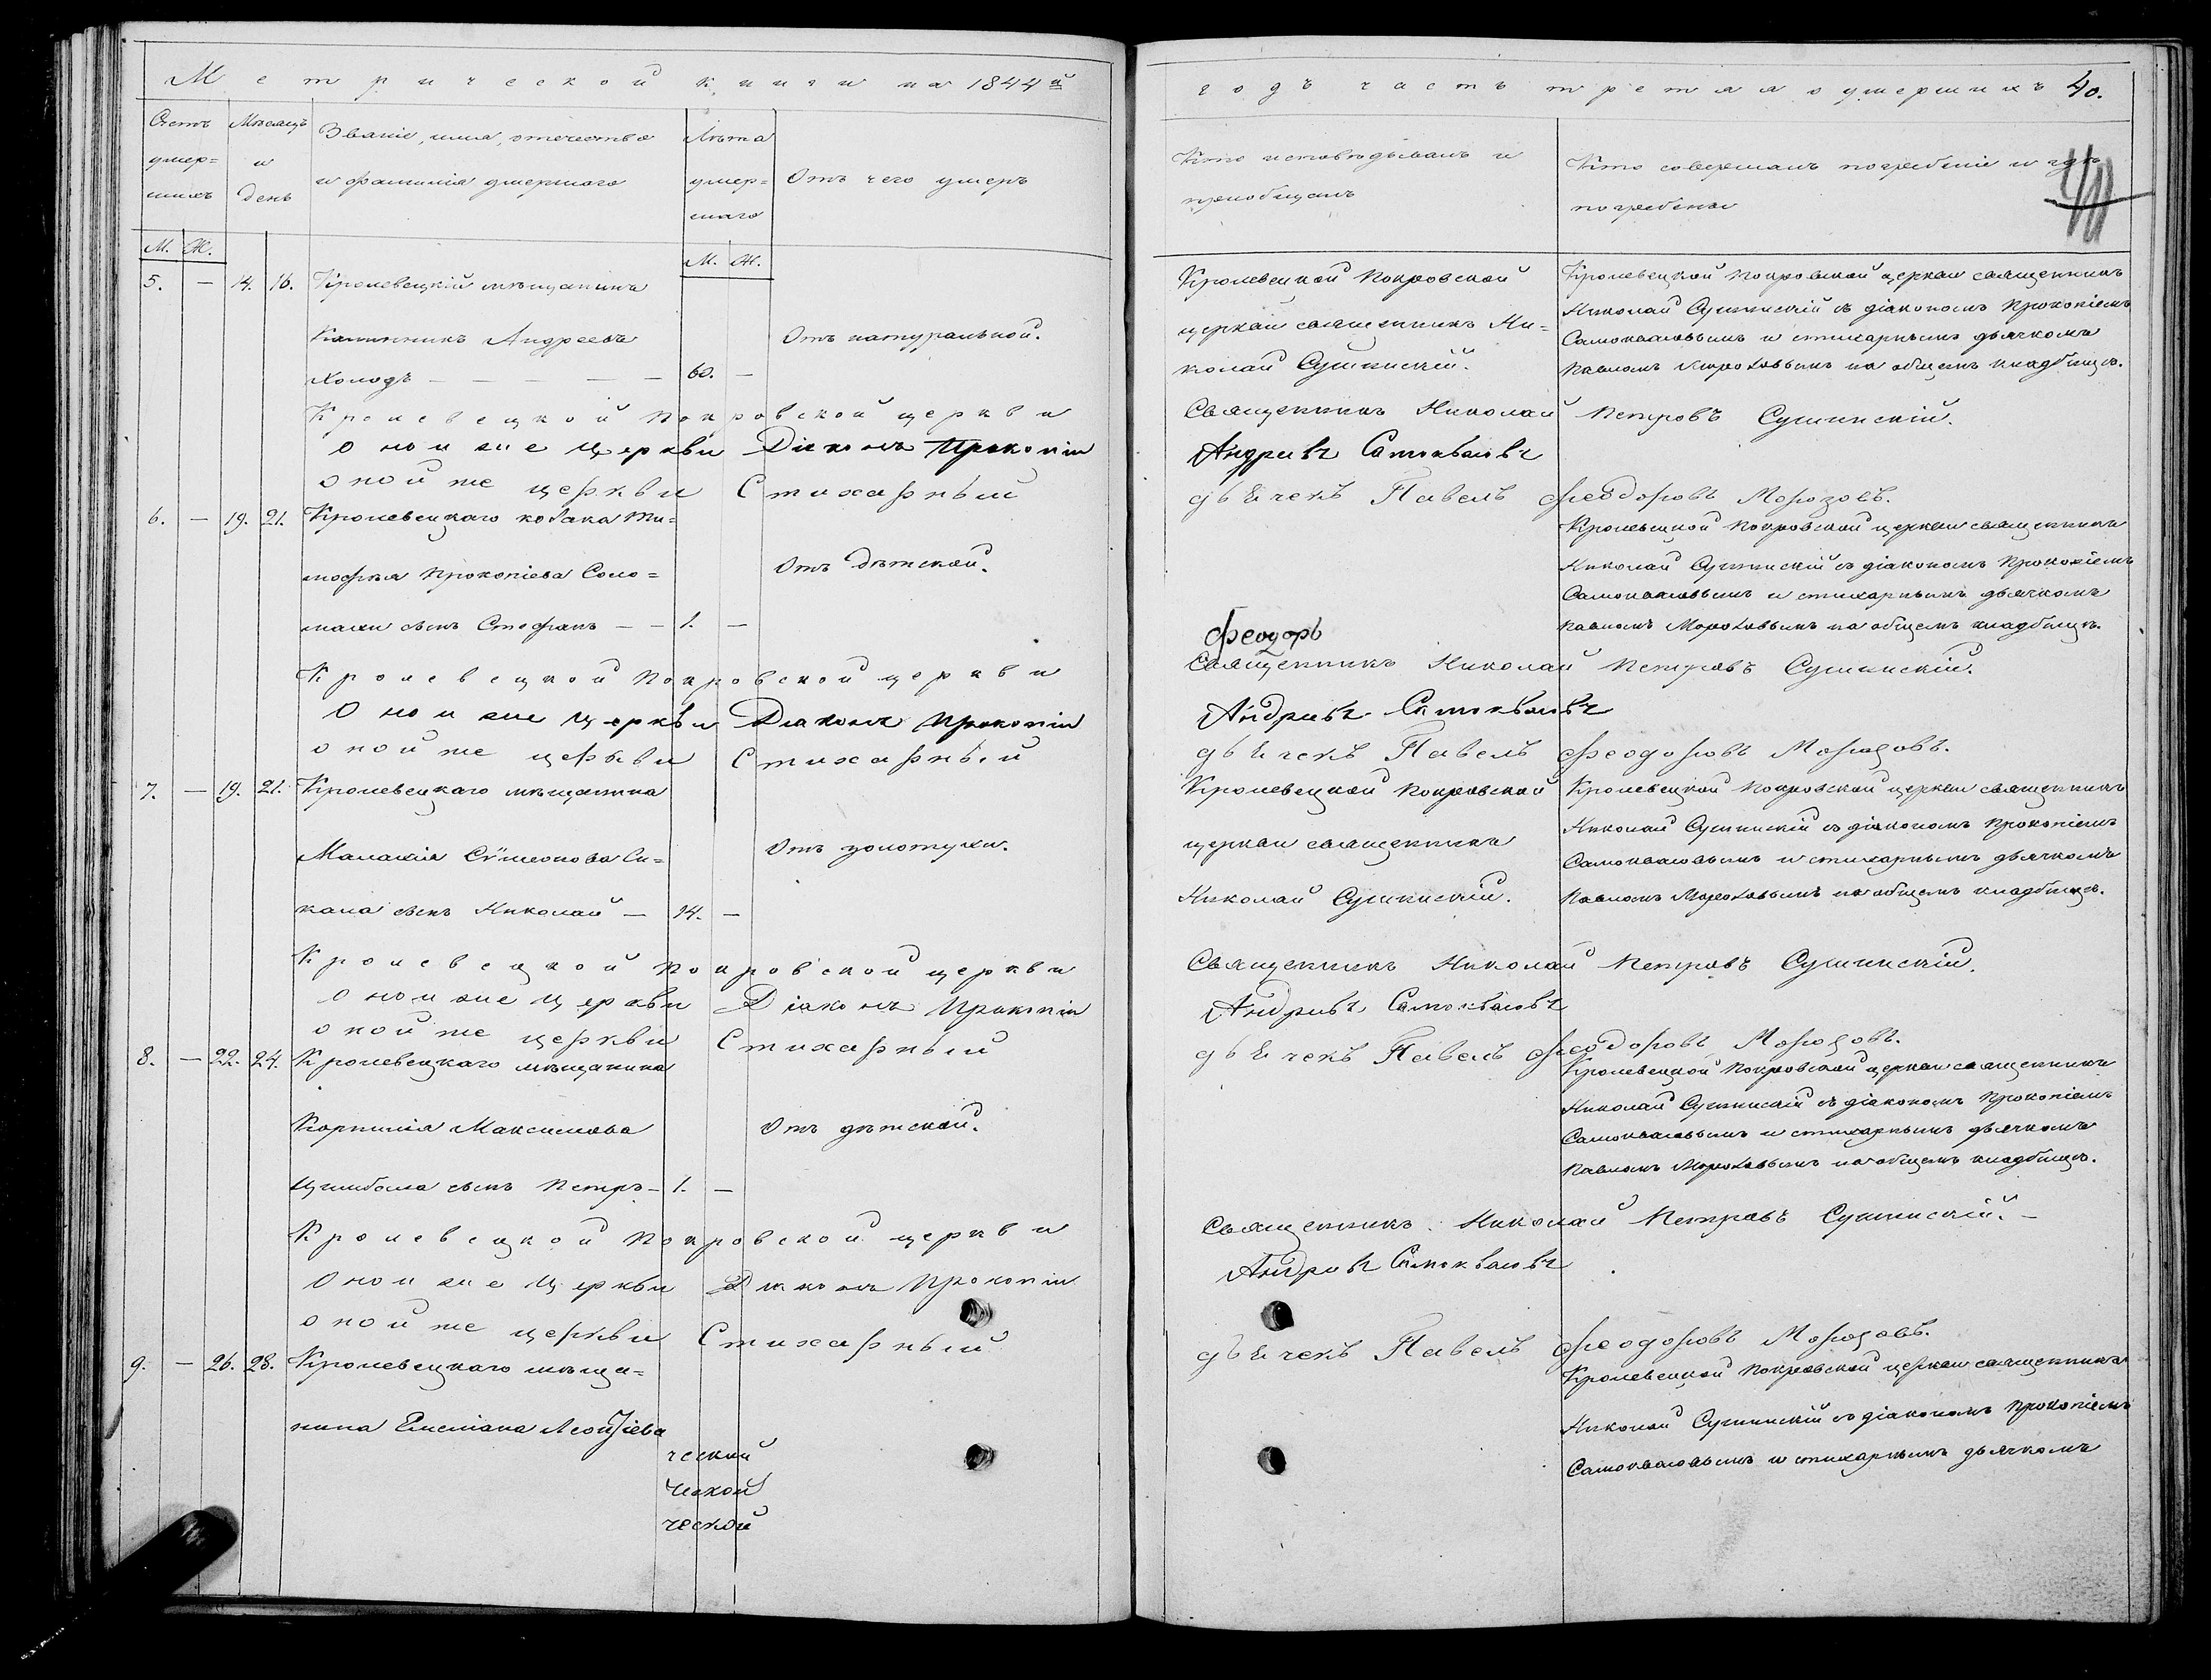 Метрической книги на 1844й
годъ часть третяя о умершихъ 40.
Счетъ умер=
шихъ
Мѣсяцъ
и
день
Званіе, имя, отечество
и фамилія умершаго
Лѣта
умер=
шаго
Отъ чего умеръ
Кто исповѣдывалъ и
пріобщалъ
Кто совершалъ погребеніе и гдѣ
погребены
40
М. Ж.
М. Ж.
5. — 14. 16. Кролевецкій мѣщанинъ
Калинникъ Андреевъ
Холодъ — — — — — 60. —
Отъ натуральной.
Кролевецкой Покровской
церкви священникъ Ни=
колай Сушинскій.
Кролевецкой Покровской церкви священникъ
Николай Сушинскій съ діакономъ Прокопіемъ
Самокваловымъ и стихарнымъ дьячкомъ
Павломъ Морозовымъ на общемъ кладбищѣ.
Кролевецкой Покровской церкви Священникъ Николай Петровъ Сушинскій.
Оной же Церкви Діяконъ Прокопій Андреевъ Самокваловъ
Оной же церкви Стихарный дьячекъ Павелъ Феодоровъ Морозовъ.
6. — 19. 21. Кролевецкаго козака Ти=
мофея Прокопіева Соло=
махи сынъ Стефанъ — — 1. —
Отъ дѣтской.
Кролевецкой Покровской церкви священникъ
Николай Сушинскій съ діакономъ Прокопіемъ
Самокваловымъ и стихарнымъ дьячкомъ
Павломъ Морозовымъ на общемъ кладбищѣ.
Феодоръ
Кролевецкой Покровской церкви Священникъ Николай Петровъ Сушинскій.
Оной же Церкви Діаконъ Прокопій Андреевъ Самокваловъ
Оной же церкви Стихарный дьячекъ Павелъ Феодоровъ Морозовъ.
7. — 19. 21. Кролевецкаго мѣщанина
Малахія Сѵмеонова Си=
кала сынъ Николай — 14. —
Отъ золотухи.
Кролевецкой Покровской
церкви священникъ
Николай Сушинскій.
Кролевецкой Покровской церкви священникъ
Николай Сушинскій съ діакономъ Прокопіемъ
Самокваловымъ и стихарнымъ дьячкомъ
Павломъ Морозовымъ на общемъ кладбищѣ.
Кролевецкой Покровской церкви Священникъ Николай Петровъ Сушинскій.
Оной же Церкви Діяконъ Прокопій Андреевъ Самокваловъ
Оной же церкви Стихарный дьячекъ Павелъ Феодоровъ Морозовъ.
8. — 22. 24. Кролевецкаго мѣщанина
Корнилія Максимова
Цимбала сынъ Петръ — 1. —
Отъ дѣтской.
Кролевецкой Покровской церкви священникъ
Николай Сушинскій съ діакономъ Прокопіемъ
Самокваловымъ и стихарнымъ дьячкомъ
Павломъ Морозовымъ на общемъ кладбищѣ.
Кролевецкой Покровской церкви Священникъ Николай Петровъ Сушинскій. —
Оной же Церкви Діяконъ Прокопій Андреевъ Самокваловъ
Оной же церкви Стихарный дьячекъ Павелъ Феодоровъ Морозовъ.
9. — 26. 28. Кролевецкаго мѣща=
нина Емеліана Леонтіева
Кролевецкой Покровской церкви священникъ
Николай Сушинскій съ діакономъ Прокопіемъ
Самокваловымъ и стихарнымъ дьячкомъ
ческой
ческой
ческой